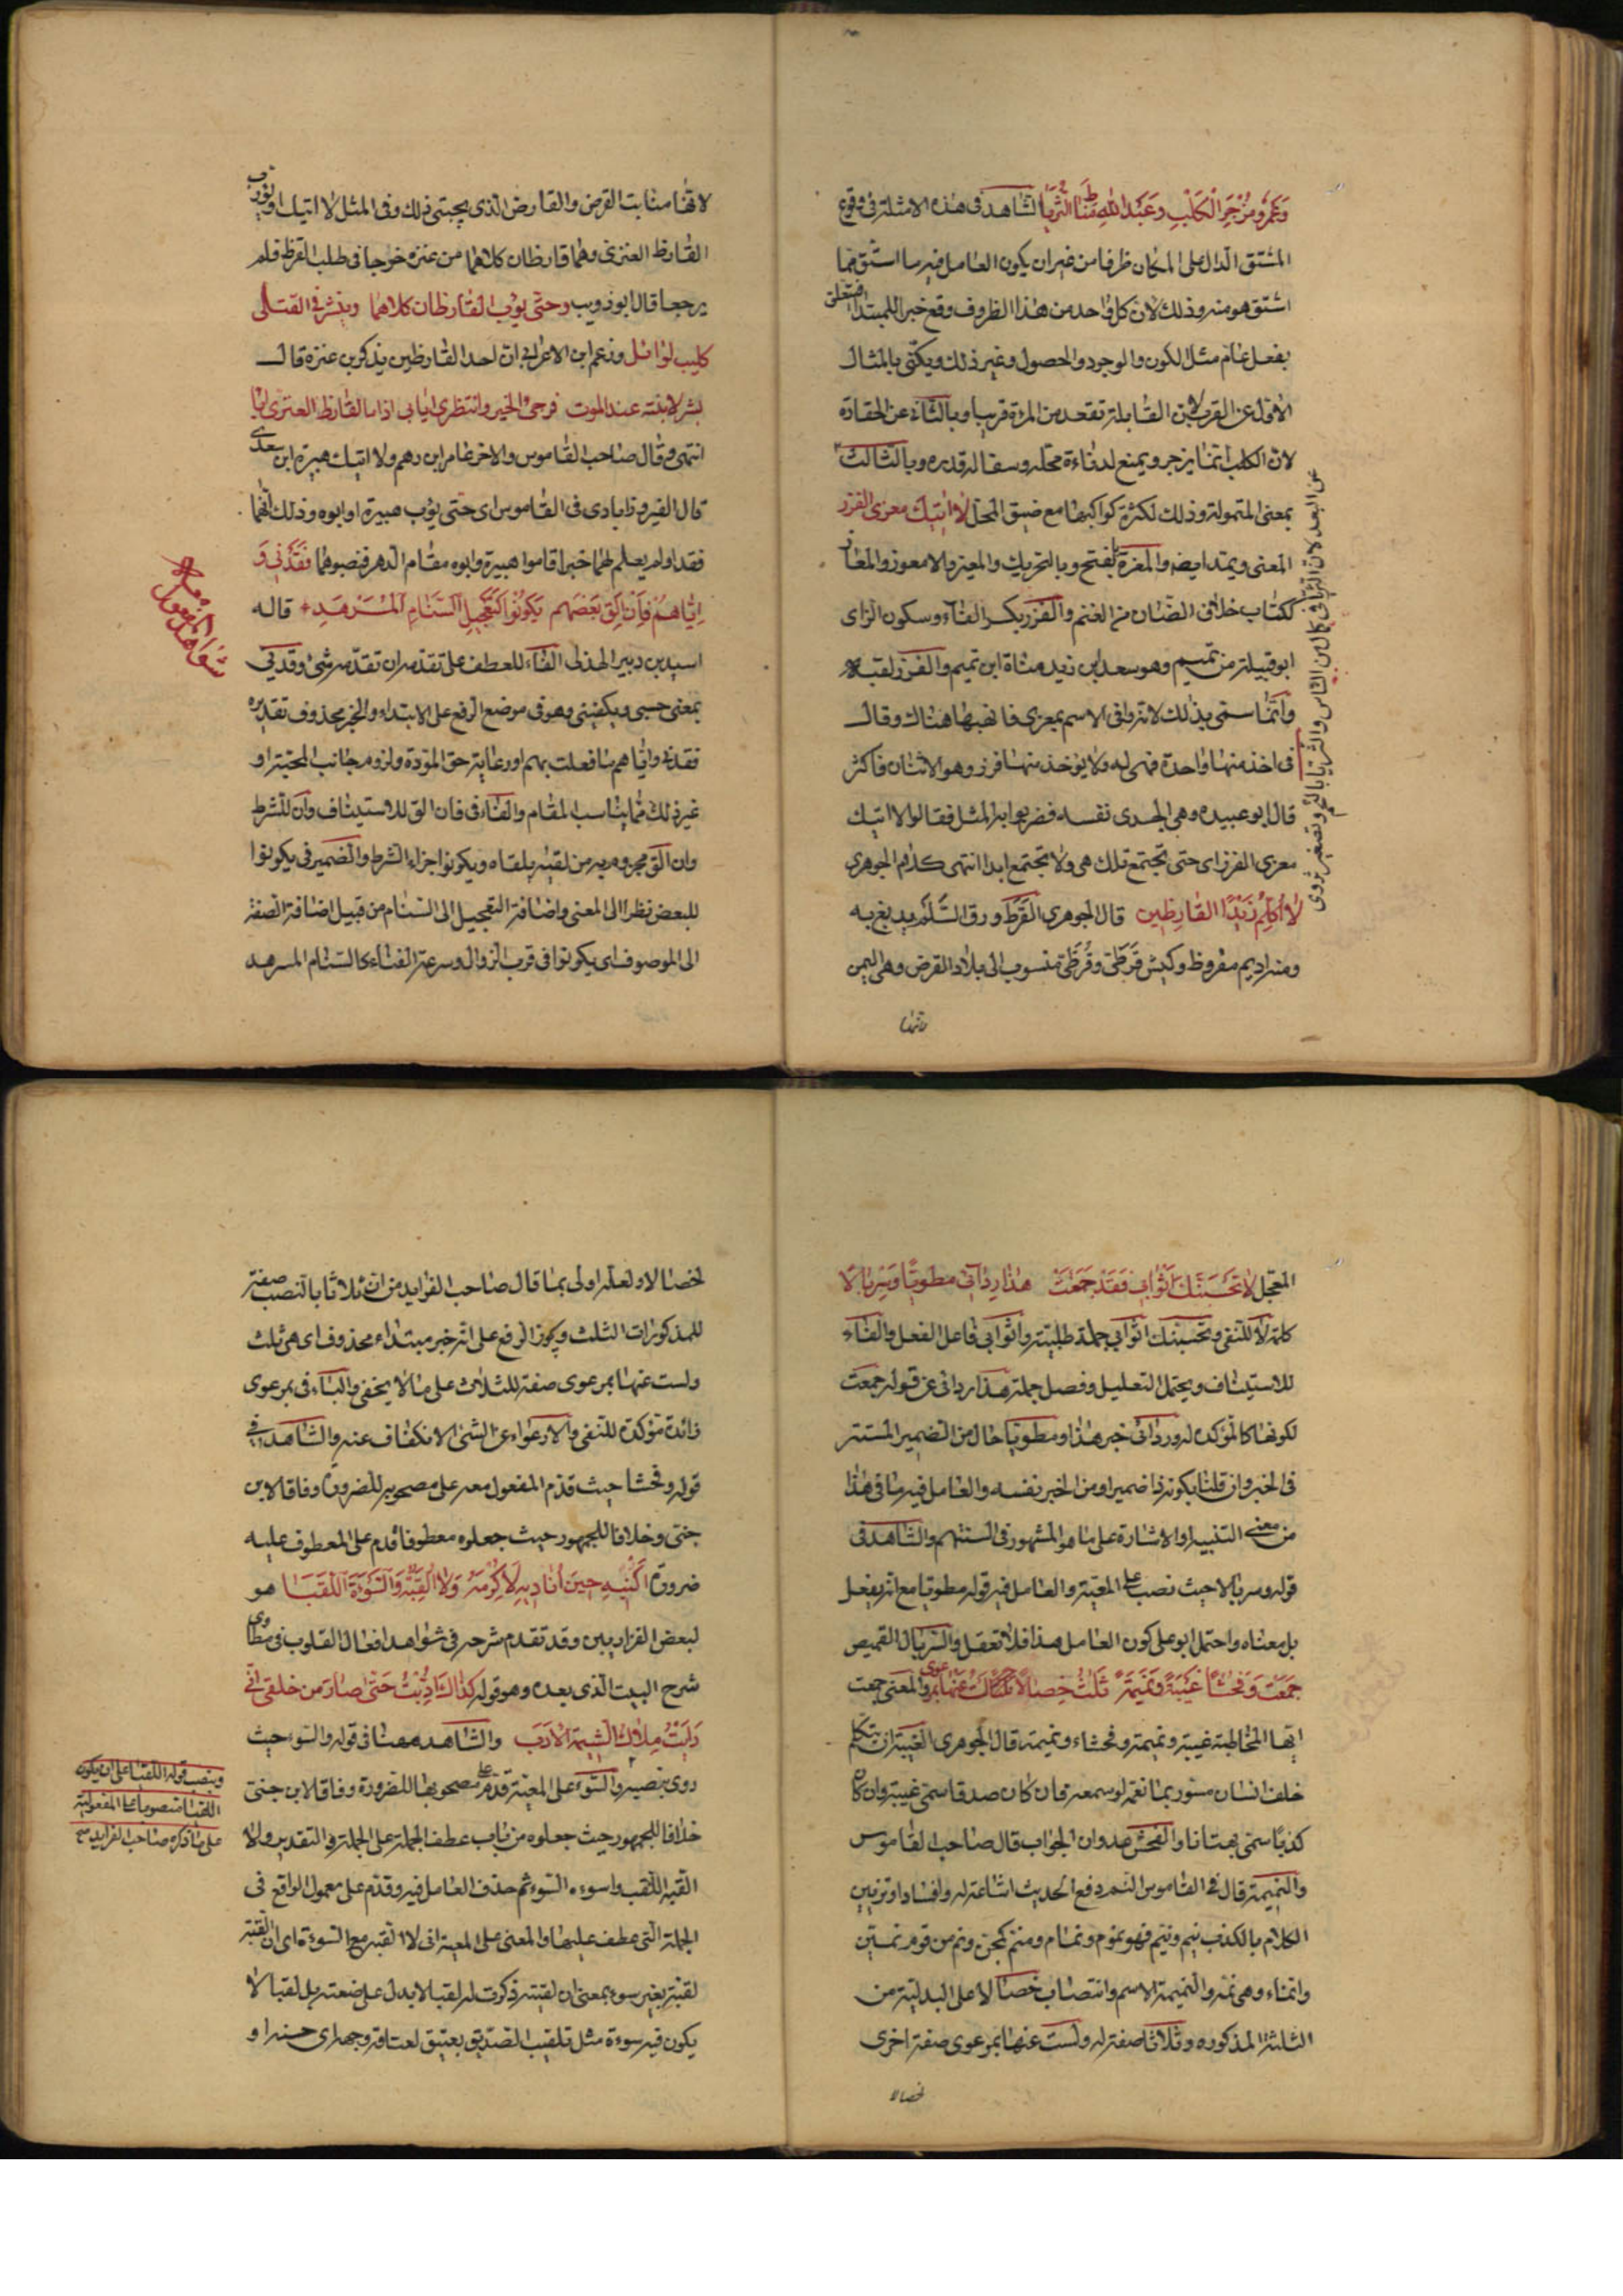 وعمرو مزجر الكلب وعبد الله مناط الثريا الشاهد فى هذه الامثلة فى وقوع
المشتق الدال على المكان ظرفا من غير ان يكون العامل فيه ما اشتق مما
اشتق هو منه وذلك لان كل واحد من هذا الظروف وقع خبرا للمبتدا فيتعلق
بفعل عام مثل الكون والوجود والحصول وغير ذلك ويكنى بالمثال
الاول عن القرب لان القابلة تقعد من المرءة قريبا وبالثانى عن الحقارة
لان الكلب انما يزجر ويمنع لدناءة محله وسفالة قدره وبالثالث
عن البعد لان الثريا فى من الناس والثريا بالتصغير ثروى
بمعنى المتمولة وذلك لكثرة كواكبها مع ضيق المحل لا اتيك معزى الفزر
المعنى ويمتد ايضه والمعزة بالفتح وبالتحريك والمعيز والامعوز والمعاز
ككتاب خلاف الضان من الغنم والفزر بكسر الفاء وسكون الزاى
ابو قبيلة من تميم وهو سعد ابن زيد مناة ابن تميم والفزر لقبه
وانما سمى بذلك لانه وافى الاسم بمعزى فانهبها هناك وقال
من اخذ منها واحدة فهى له ولا يؤخذ منها فزر وهو الاثنان فاكثر
قال ابو عبيده وهى الجدى نفسه فضربوا به المثل فقالوا لا اتيك
معزى الفزر اى حتى تجتمع تلك هى ولا تجتمع ابدا انتهى كلام الجوهرى
لا اكلم زيدا القارظين قال الجوهرى القرظ ورق السلم يدبغ به
ومنه اديم مقروظ وكبش قرظى وقرظى منسوب الى بلاد القرض وهى اليمن
لانها
لانها منابت القرض والقارض الذى يجتبى ذلك وفى المثل لا اتيك او يؤوب
القارظ العنزى وهما قارظان كلاهما من عنزه خرجا فى طلب القرظ فلم
يرجعا قال ابو ذويب وحتى يؤب القارظان كلاهما وينشر فى القتلى
كليب لوائل وزعم ابن الاعرابى ان احد القارظين يذكر بن عنزة قال
بشر لابنته عند الموت فرجى الخير وانتظرى ايابى اذا ما القارظ العنزى ابا
انتهى وقال صاحب القاموس والاخر عامر ابن دهم ولا اتيك هبيرة ابن سعدى
قال الفيروزابادى فى القاموس اى حتى يؤب هبيرة او ابوه وذلك انهما
فقدا ولم يعلم لهما خبر اقاموا هبيرة وابوه مقام الدهر فنصبوهما فقدنى و
اياهم فان الق بعضهم يكونوا كتعجيل السنام المسرهد قاله
شواهد المفعول معه
اسيد بن دبير الهذلى الفاء للعطف على تقدمه ان تقدمه شئ وقدنى
بمعنى حسبى ويكفينى وهو فى موضع الرفع على الابتداء والخبر محذوف تقديره
فقدنى واياهم ما فعلت بهم او رعاية حق المودة ولزوم جانب المحبة او
غير ذلك مما يناسب المقام والفاء فى فان الق للاستيناف وان للشرط
وان الق مجزوم به من لقيه يلقاه ويكونوا جزاء الشرط والضمير فى يكونوا
للبعض نظرا الى المعنى واضافة التعجيل الى السنام من قبيل اضافة الصفة
الى الموصوف اى يكونوا فى قرب الزوال وسرعة الفناء كالسنام المسرهد
المعجل لا تحبسنك اثوابى فقد جمعت هذا رداىى مطويا وسربالا
كلمة لا للنفى وتحبسنك اثوابى جملة طلبية واثوابى فاعل الفعل والفاء
للاستيناف ويحتمل التعليل وفصل جملة هذا رداىى عن قوله جمعت
لكونها كالمؤكده له ورداىى خبر هذا ومطويا حال من الضمير المستتر
فى الخبر وان قلنا بكونه ذا ضمير او من الخبر نفسه والعامل فيه ما فى هذا
من معنى التنبيه او الاشارة على ما هو المشهور فى السنتهم والشاهد فى
قوله وسربالا حيث نصب على المعية والعامل فيه قوله مطويا مع انه بفعل
بل معناه واحتمل ابو على كون العامل هذا فلا تغفل والسربال القميص
جمعت وفحشا غيبة ونميمة ثلث خصالا لست عنها بمرعوى والمعنى جمعت
ايها المخاطبة غيبة ونميمة وفحشاء ونميمة قال الجوهرى الغيبة ان يتكلم
خلف انسان مستور بما يغمه لو سمعه فان كان صدقا سمى غيبة وان كان
كذبا سمى بهتانا والفحش عدوان الجواب قاله صاحب القاموس
والنميمة قال فى القاموس النم رفع الحديث اشاعة له وافسادا وتزيين
الكلام بالكذب ينم وينم فهو نموم ونمام ومنم كمجن ونم من قوم نمين
وانماء وهى نمة والنميمة الاسم وانتصاب خصالا على البدلية من
الثلثة المذكوره وثلاثا صفة له ولست عنها بمرعوى صفة اخرى
لخصالا
لخصالا ولعله اولى بما قال صاحب الفرايد من ان ثلاثا بالنصب صفة
للمذكورات الثلث ويجوز الرفع على انه خبر مبتداء محذوف اى هى ثلث
ولست عنها بمرعوى صفة للثلاث على ما لا يخفى والباء فى بمرعوى
زائدة مؤكدة للنفى والارعواء عن الشئ الانكفاف عنه والشاهد فى
قوله وفحشا حيث قدم المفعول معه على مصحوبه للضرورة وفاقا لابن
جنى وخلافا للجمهور حيث جعلوه معطوفا قدم على المعطوف عليه
ضرورة اكنيه حين اناديه لاكرمه ولا القبه والسوءة اللقبا هو
لبعض الفزاريين وقد تقدم شرحه فى شواهد افعال القلوب فى مطاوى
شرح البيت الذى بعده وهو قوله كذاك ادبت حتى صار من خلقى انى
رايت ملاك الشيمة الادب والشاهد ههنا فى قوله والسوء حيث
روى بنصبه والسوء على المعية قدم على مصحوبها للضرورة وفاقا لابن جنى
وبنصب قوله اللقبا على ان يكون
اللقبا منصوبا على المفعولية
على ما ذكره صاحب الفرايد
خلافا للجمهور حيث جعلوه من باب عطف الجملة على الجملة فى التقدير ولا
القبه اللقب واسوءه السوء ثم حذف العامل فيه وقدم على معمول الواقع فى
الجملة التى عطف عليها والمعنى على المعية انى لا القبه مع السوءة اى ان لقبته
لقبته بغير سوء بمعنى ان لقبته ذكرت له لقبا لا يدل على ضعته بل لقبا لا
يكون فيه سوءة مثل تلقيب الصديق بعتيق لعتاقة وجهه اى حسنه او